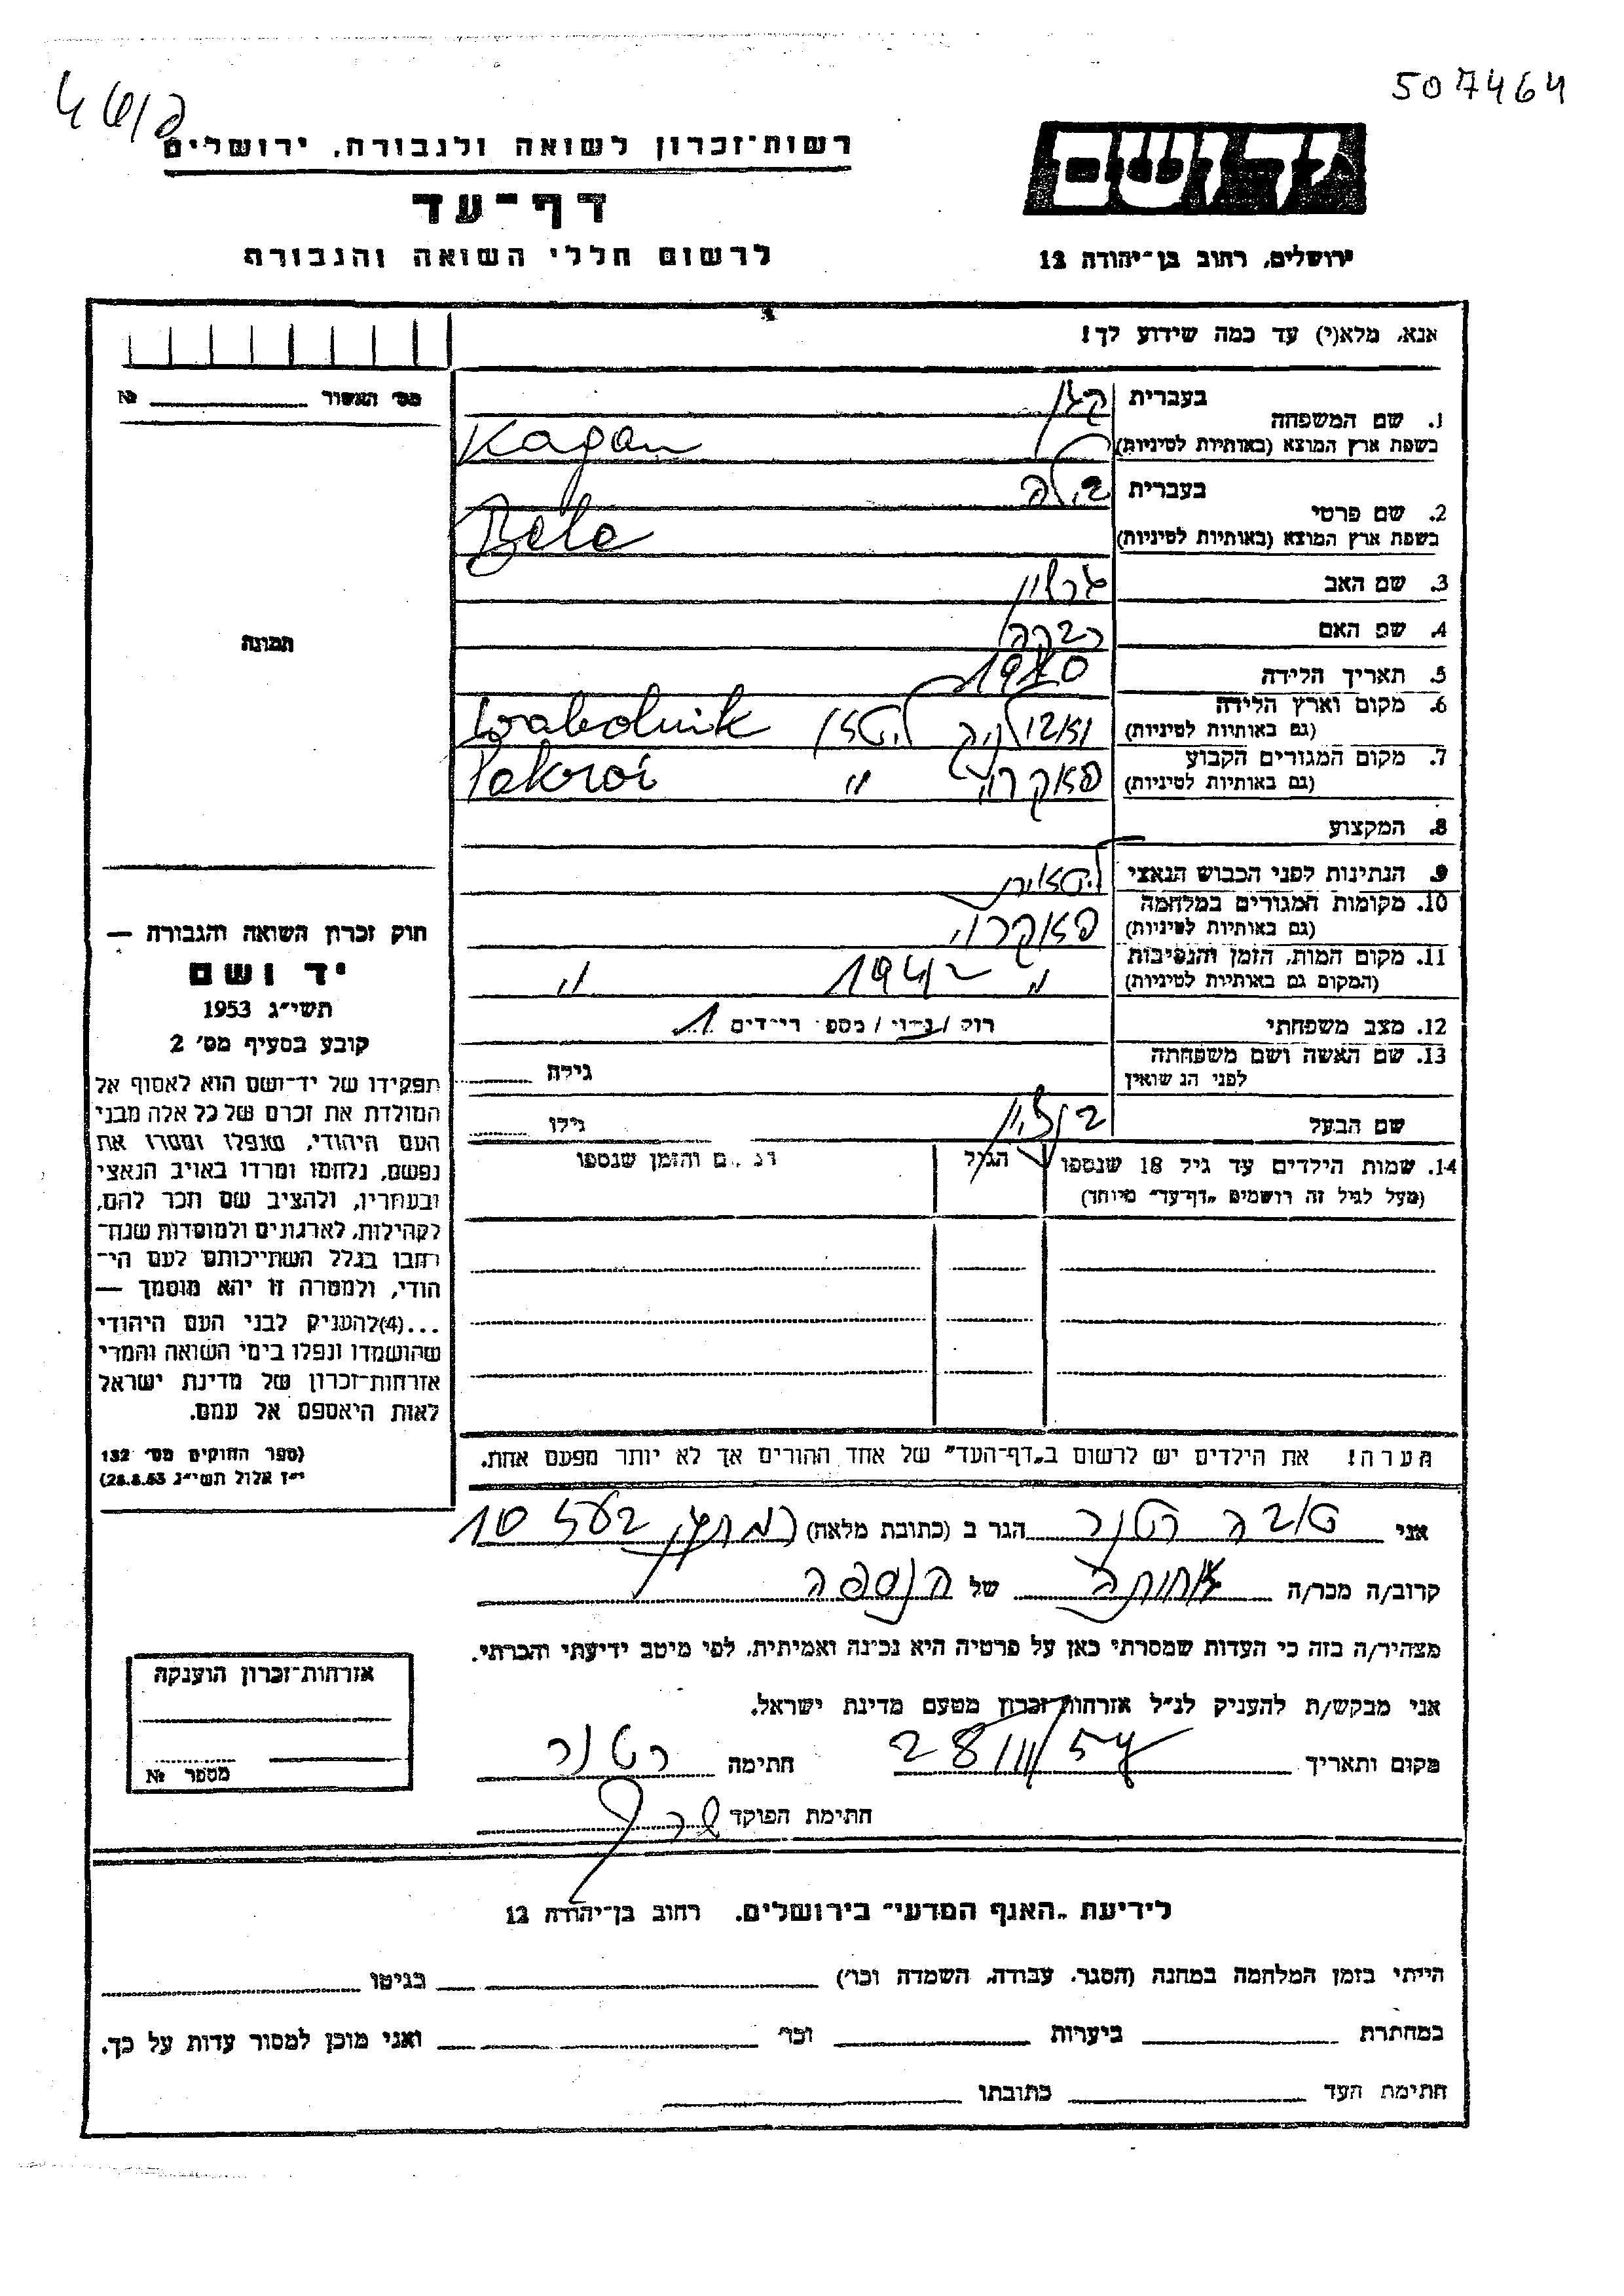 507464
רשות־זכרון לשואה ולגבורה, ירושלים
יד ושם
דף־עד
לרשום חללי השואה והגבורה
ירושלים, רחוב בן־יהודה 12
אנא, מלא(י) עד כמה שידוע לך!
מס׳ האשור № 
1. שם המשפחה
בעברית קגן
בשפת ארץ המוצא (באותיות לטיניות) Kagan
2. שם פרטי
בעברית בלה
בשפת ארץ המוצא (באותיות לטיניות) Bela
3. שם האב
4. שם האם רבקה
תמונה
5. תאריך הלידה 1910
6. מקום וארץ הלידה
(גם באותיות לטיניות) ליטא
7. מקום המגורים הקבוע
(גם באותיות לטיניות) פאקרוי " Pakroi
8. המקצוע
9. הנתינות לפני הכבוש הנאצי ליטאית
10. מקומות המגורים במלחמה
(גם באותיות לטיניות) פאקרוי
11. מקום המות, הזמן והנסיבות
(המקום גם באותיות לטיניות) " 1942 "
12. מצב משפחתי רוק / נשוי / מספר ילדים 1
13. שם האשה ושם משפחתה
לפני הנשואין גילה
שם הבעל גילו
14. שמות הילדים עד גיל 18 שנספו הגיל המקום והזמן שנספו
(מעל לגיל זה רושמים „דף־עד" מיוחד)
חוק זכרון השואה והגבורה —
יד ושם
תשי״ג 1953
קובע בסעיף מס׳ 2
תפקידו של יד־ושם הוא לאסוף אל
המולדת את זכרם של כל אלה מבני
העם היהודי, שנפלו ומסרו את
נפשם, נלחמו ומרדו באויב הנאצי
ובעוזריו, ולהציב שם וזכר להם,
לקהילות, לארגונים ולמוסדות שנח־
רבו בגלל השתייכותם לעם הי־
הודי, ולמטרה זו יהא מוסמך —
...(4) להעניק לבני העם היהודי
שהושמדו ונפלו בימי השואה והמרי
אזרחות־זכרון של מדינת ישראל
לאות היאספם אל עמם.
(ספר החוקים מס׳ 132
י״ז אלול תשי״ג 28.8.53)
הערה! את הילדים יש לרשום ב„דף־העד" של אחד ההורים אך לא יותר מפעם אחת.
אני טובה רטנר הגר ב (כתובת מלאה) 10
קרוב/ה מכר/ה אחותה של הנספה
מצהיר/ה בזה כי העדות שמסרתי כאן על פרטיה היא נכונה ואמיתית, לפי מיטב ידיעתי והכרתי.
אני מבקש/ת להעניק לנ״ל אזרחות־זכרון מטעם מדינת ישראל.
מקום ותאריך 28/III/57 חתימה רטנר
חתימת הפוקד
אזרחות־זכרון הוענקה
מספר №
לידיעת „האגף המדעי" בירושלים. רחוב בן־יהודה 12
הייתי בזמן המלחמה במחנה (הסגר, עבודה, השמדה וכו׳) בגיטו
במחתרת ביערות וכו׳ ואני מוכן למסור עדות על כך.
חתימת העד כתובתו